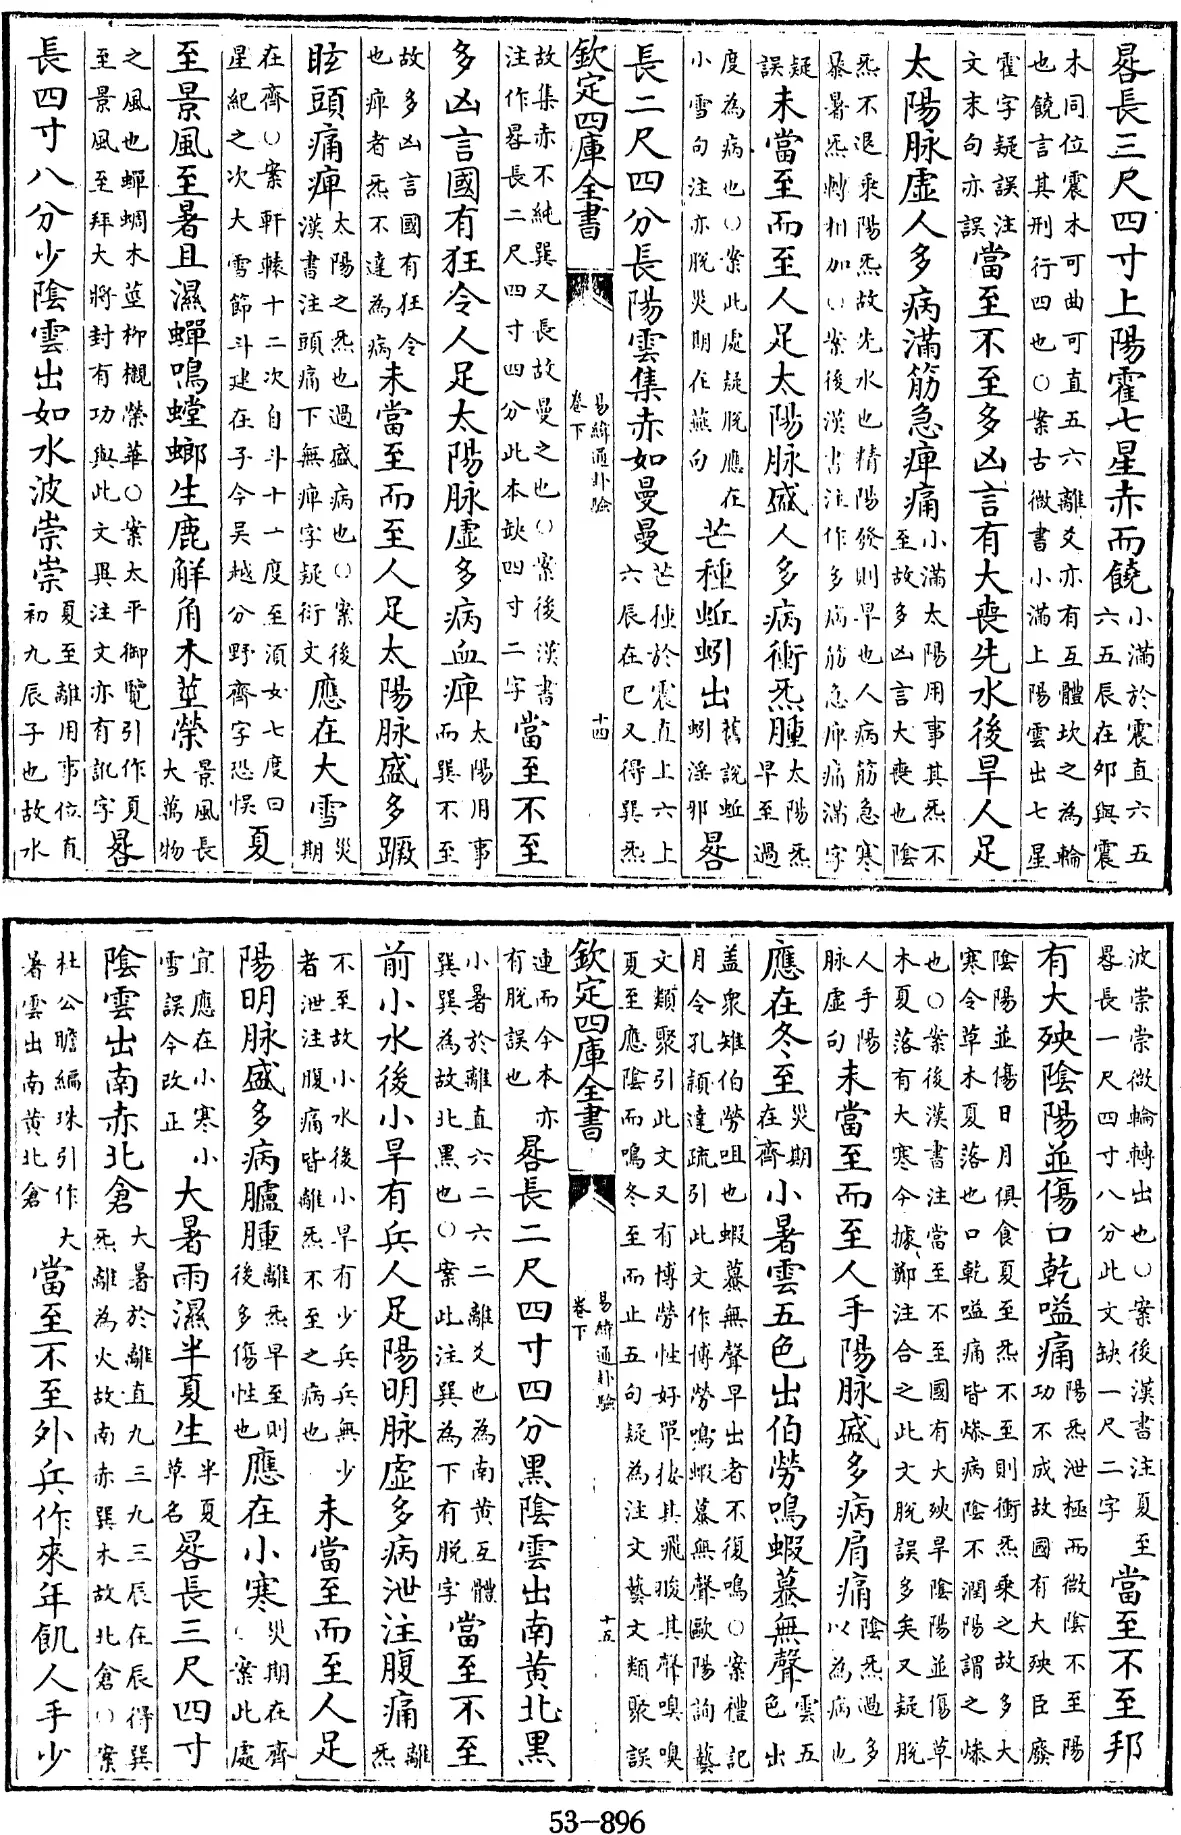 晷長三尺四寸上陽霍七星赤而饒小滿於震直六五六五辰在夘與震
木同位震木可曲可直五六離爻亦有互體坎之為輪也饒言其刑行四也○案古微書小滿上陽雲出七星
霍字疑誤注文末句亦誤當至不至多凶言有大喪先水後旱人足
太陽脉虛人多病滿筋急痺痛小滿太陽用事其炁不至故多凶言大喪也陰
炁不退乘陽炁故先水也精陽發則旱也人病筋急寒暴暑炁轉相加○案後漢書注作多病筋急痺痛滿字
疑誤未當至而至人足太陽脉盛人多病衝炁腫太陽炁早至過
度為病也○案此處疑脫應在小雪句注亦脫災期在燕句芒種蚯蚓出舊說蚯蚓淫邪晷
長二尺四分長陽雲集赤如曼曼芒種於震直上六上六辰在巳又得巽炁
欽定四庫全書 易緯通卦驗 卷下 十四
故集赤不純巽又長故曼之也○案後漢書注作晷長二尺四寸四分此本缺四寸二字當至不至
多凶言國有狂令人足太陽脉虛多病血痺太陽用事而巽不至
故多凶言國有狂令也痺者炁不達為病未當至而至人足太陽脉盛多蹶
眩頭痛痺太陽之炁也過盛病也○案後漢書注頭痛下無痺字疑衍文應在大雪災期
在齊○案軒轅十二次自斗十一度至湏女七度曰星紀之次大雪節斗建在子今吴越分野齊字恐悞夏
至景風至暑且濕蟬鳴螳螂生鹿解角木莖榮景風長大萬物
之風也蟬蜩木莖柳櫬榮華○案太平御覽引作夏至景風至拜大將封有功與此文異注文亦有訛字晷
長四寸八分少陰雲出如水波崇崇夏至離用事位直初九辰子也故水
波崇崇微輪轉出也○案後漢書注夏至晷長一尺四寸八分此文缺一尺二字當至不至邦
有大殃陰陽並傷口乾嗌痛陽炁泄極而微陰不至陽功不成故國有大殃臣廢
陰陽並傷日月俱食夏至炁不至則衝炁乘之故多大寒令草木夏落也口乾嗌痛皆燥病陰不潤陽謂之燥
也○案後漢書注當至不至國有大殃旱陰陽並傷草木夏落有大寒今據鄭注合之此文脫誤多矣又疑脫
人手陽脉虛句未當至而至人手陽脉盛多病肩痛陰炁過多以為病也
應在冬至災期在齊小暑雲五色出伯勞鳴蝦蟇無聲雲五色出
盖衆雉伯勞咀也蝦蟇無聲早出者不復鳴○案禮記月令孔頴達疏引此文作博勞鳴蝦蟇無聲歐陽詢藝
文類聚引此文又有博勞性好單棲其飛𦐛其聲嗅嗅夏至應陰而鳴冬至而止五句疑為注文藝文類聚誤
欽定四庫全書 易緯通卦驗 卷下 十五
連而今本亦有脫誤也晷長二尺四寸四分黑陰雲出南黄北黑
小暑於離直六二六二離爻也為南黄互體巽巽為故北黑也○案此注巽為下有脫字當至不至
前小水後小旱有兵人足陽明脉虛多病泄注腹痛離炁
不至故小水後小旱有少兵兵無少者泄注腹痛皆離炁不至之病也未當至而至人足
陽明脉盛多病臚腫離炁早至則後多傷性也應在小寒災期在齊○案此處
宜應在小寒小雪誤今改正大暑雨濕半夏生半夏草名晷長三尺四寸
陰雲出南赤北倉大暑於離直九三九三辰在辰得巽炁離為火故南赤巽木故北倉○案
杜公瞻編珠引作大暑雲出南黄北倉當至不至外兵作來年飢人手少
53-896